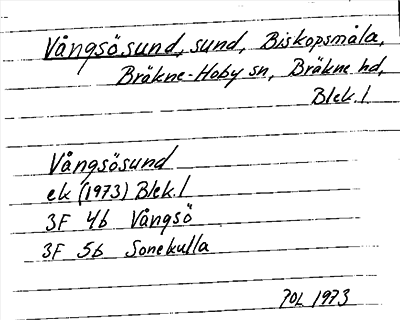 Vångsösund, sund, Biskopsmåla,
Bräkne-Hoby sn, Bräkne hd,
Blek. l.
Vångsösund
ek (1973) Blek. l
3F 4b Vångsö
3F 5b Sonekulla
POL 1973